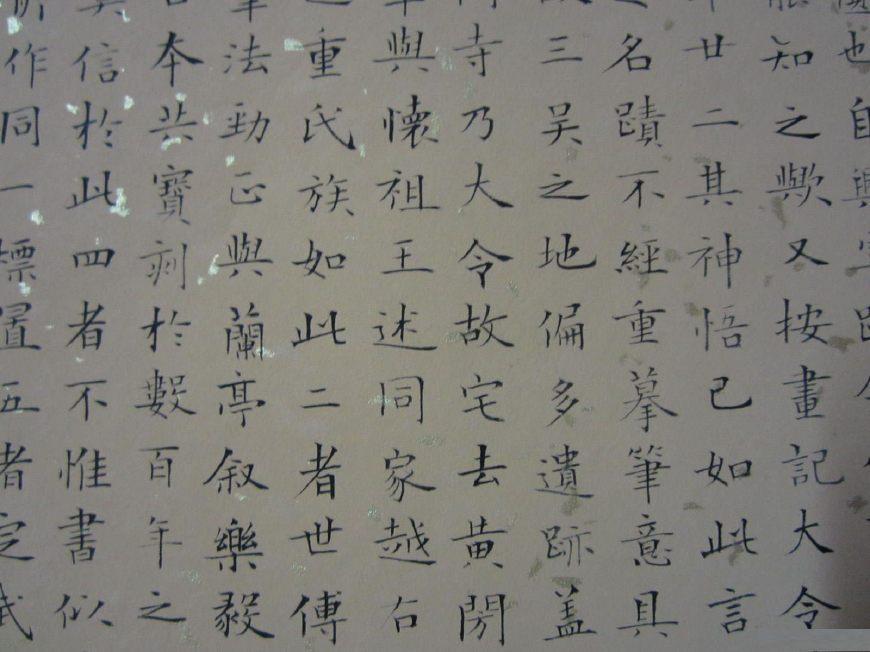 也自興
能知之歟又按畫記大令
廿二其神悟已如此言
名蹟不經重摹筆意具
三吴之地偏多遺跡蓋
寺乃大令故宅去黄閍
與懷祖王述同家越右
重氏族如此二者世傳
法勁正與蘭亭叙樂毅
本共寶刹於數百年之
信於此四者不惟書似
所作同一標置五者定武